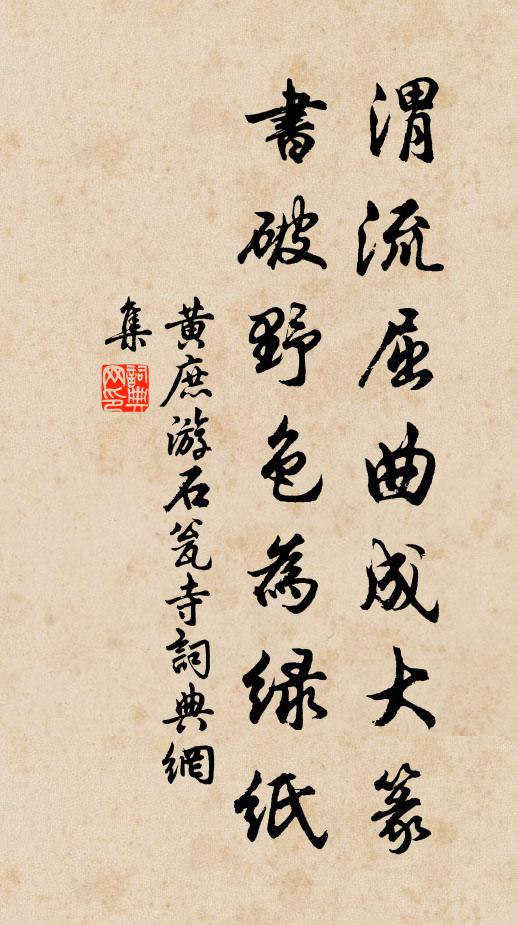 渭流屈曲成大篆
書破野色為緑紙
黄庶游石瓮寺詞典網
集
詞典网印